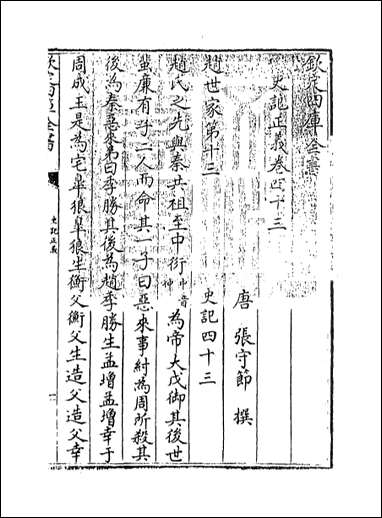 欽定四庫全書
史記正義卷四十三
唐 張守節 撰
趙世家第十三
史記四十三
趙氏之先與秦共祖至中衍中音仲為帝大戊御其後世
蜚廉有子二人而命其一子曰惡來事紂為周所殺其
後為秦惡來弟曰季勝其後為趙季勝生孟增孟增幸于
周成王是為宅臯狼臯狼生衡父衡父生造父造父幸
欽定四庫全書
史記正義